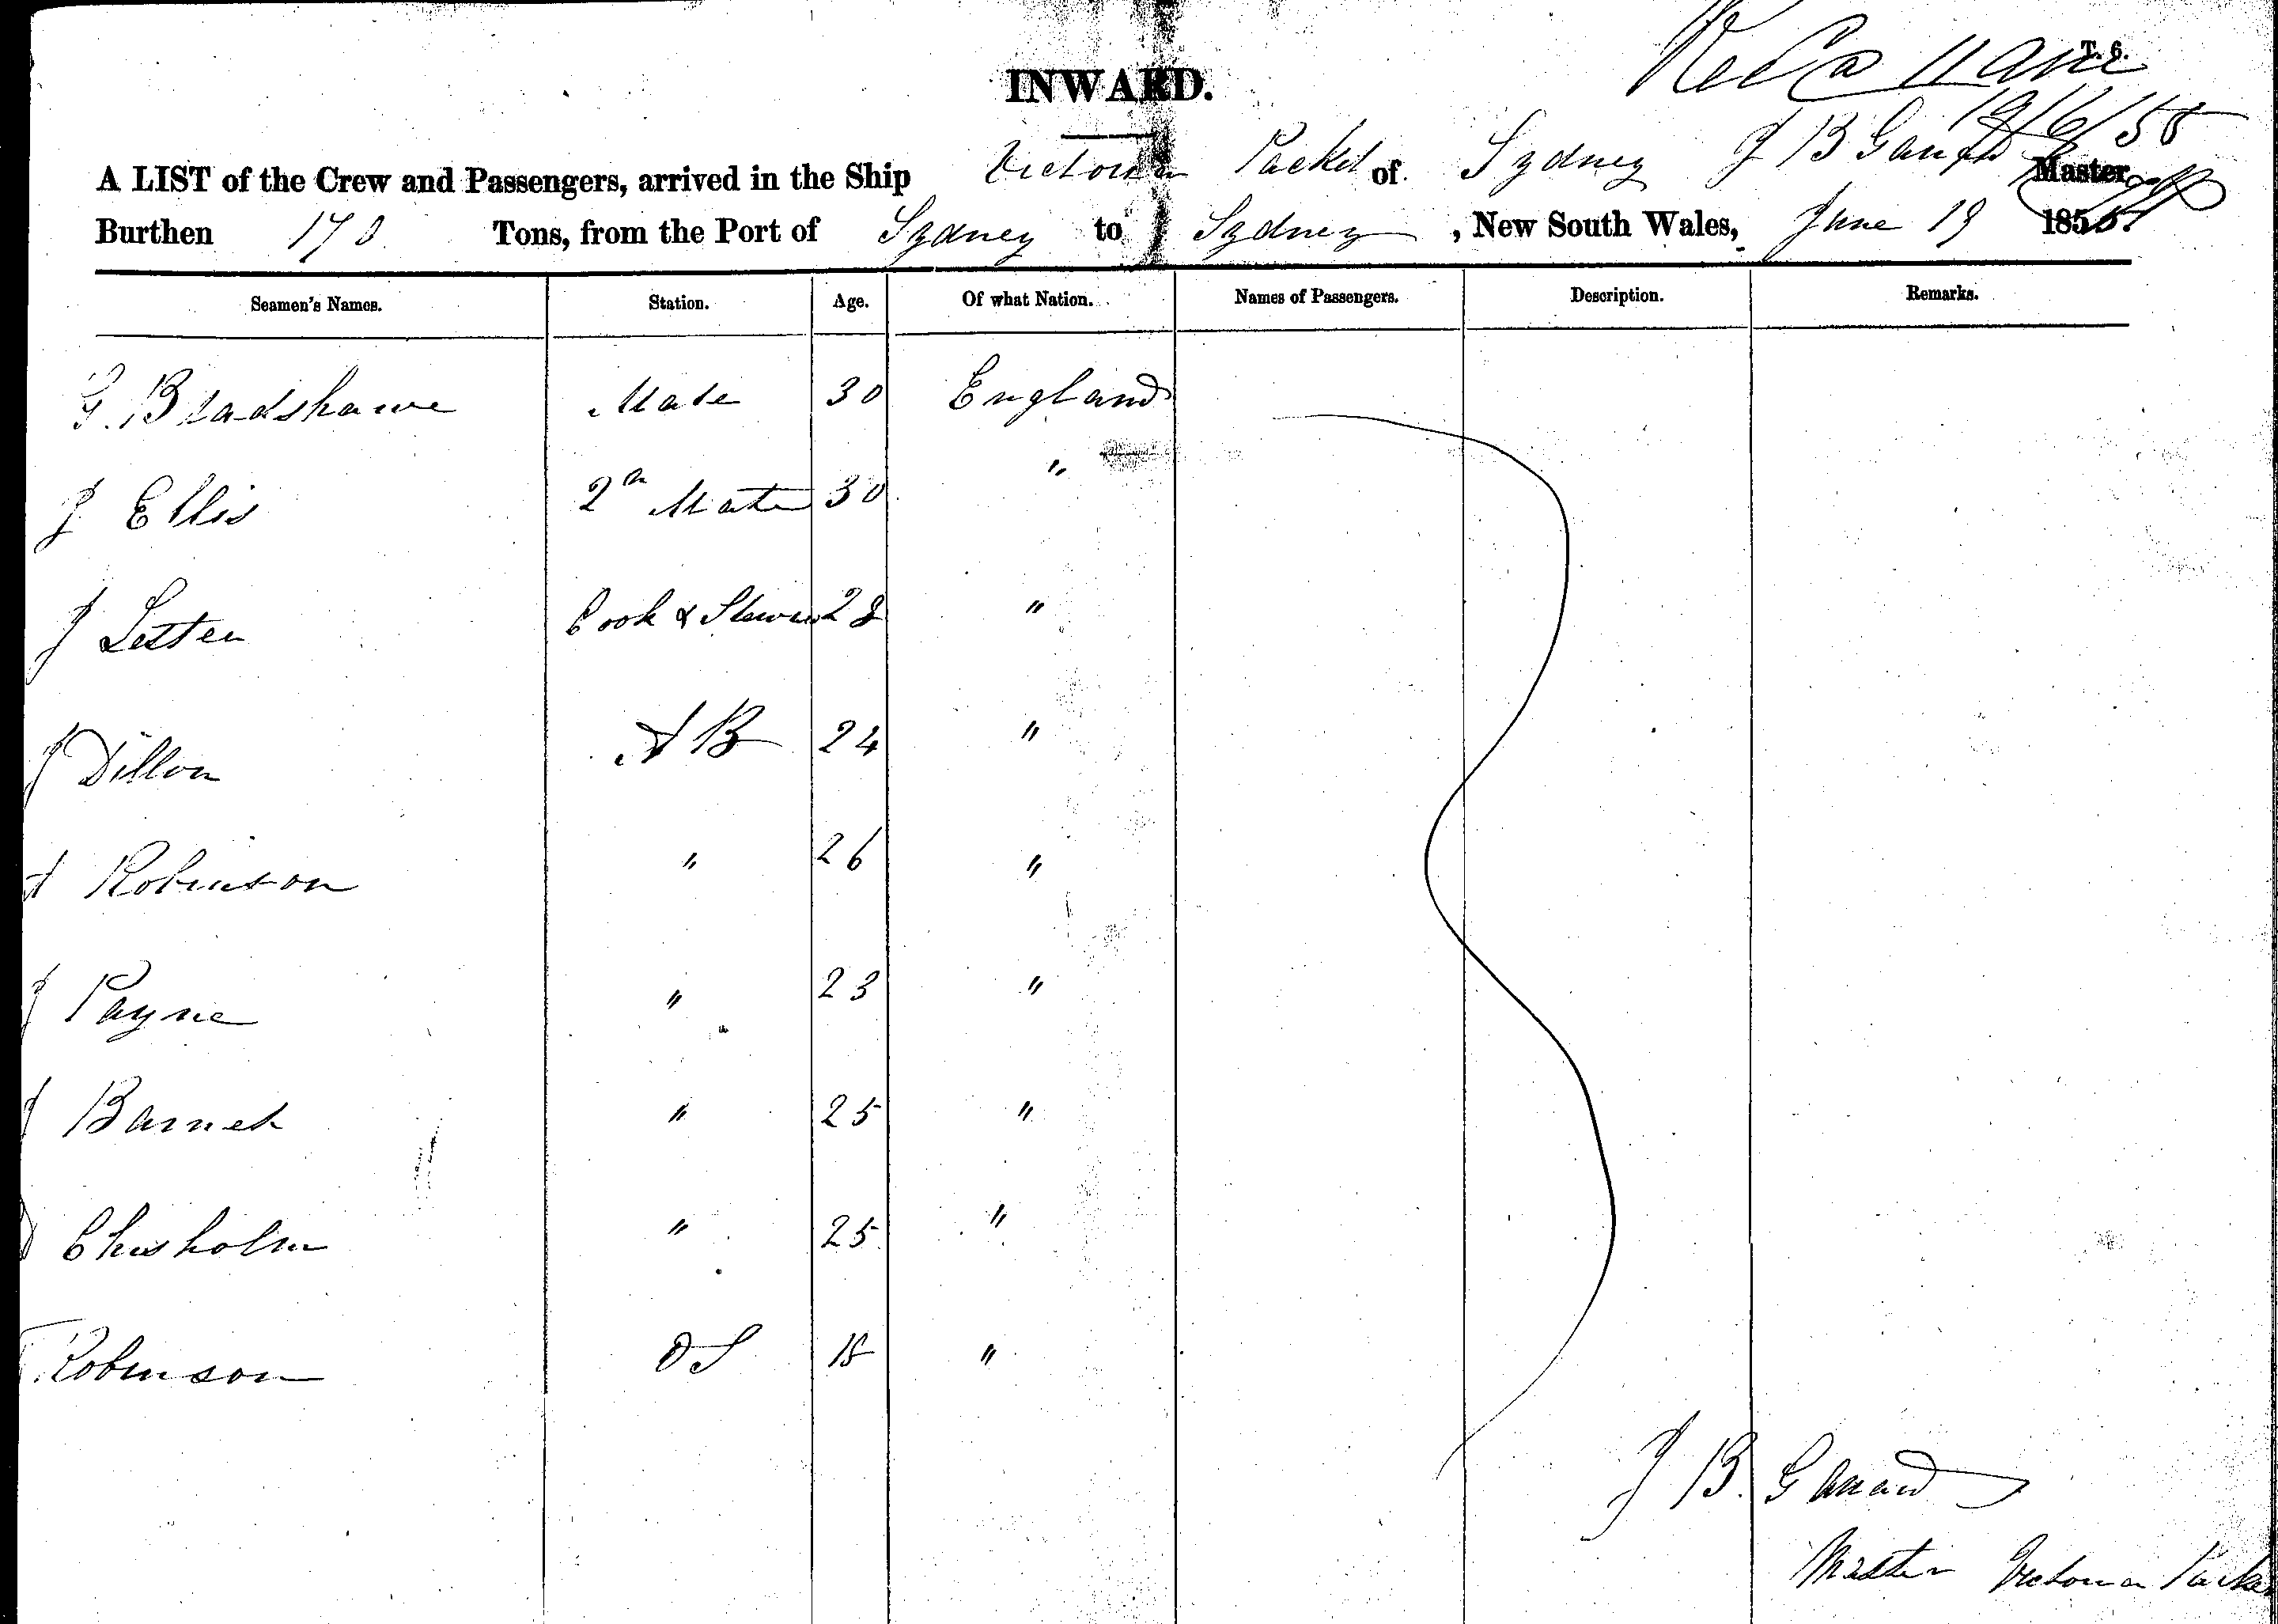 T. 6.
INWARD.
19/6/55
A LIST of the Crew and Passengers, arrived in the Ship Victoria Packet of Sydney J B Master
Burthen 170 Tons, from the Port of Sydney to Sydney, New South Wales, June 19 1855
Seamen's Names. Station. Age. Of what Nation. Names of Passengers. Description. Remarks.
G. Bradshawe Mate 30 England
J Ellis 2n Mate 30 "
J Cook & Steward 28 "
J Dillon A B 24 "
A Robinson " 26 "
J Payne " 23 "
J Barnet " 25 "
Chisholm " 25 "
Robinson O S 18 "
J B.
Master Victoria Packet